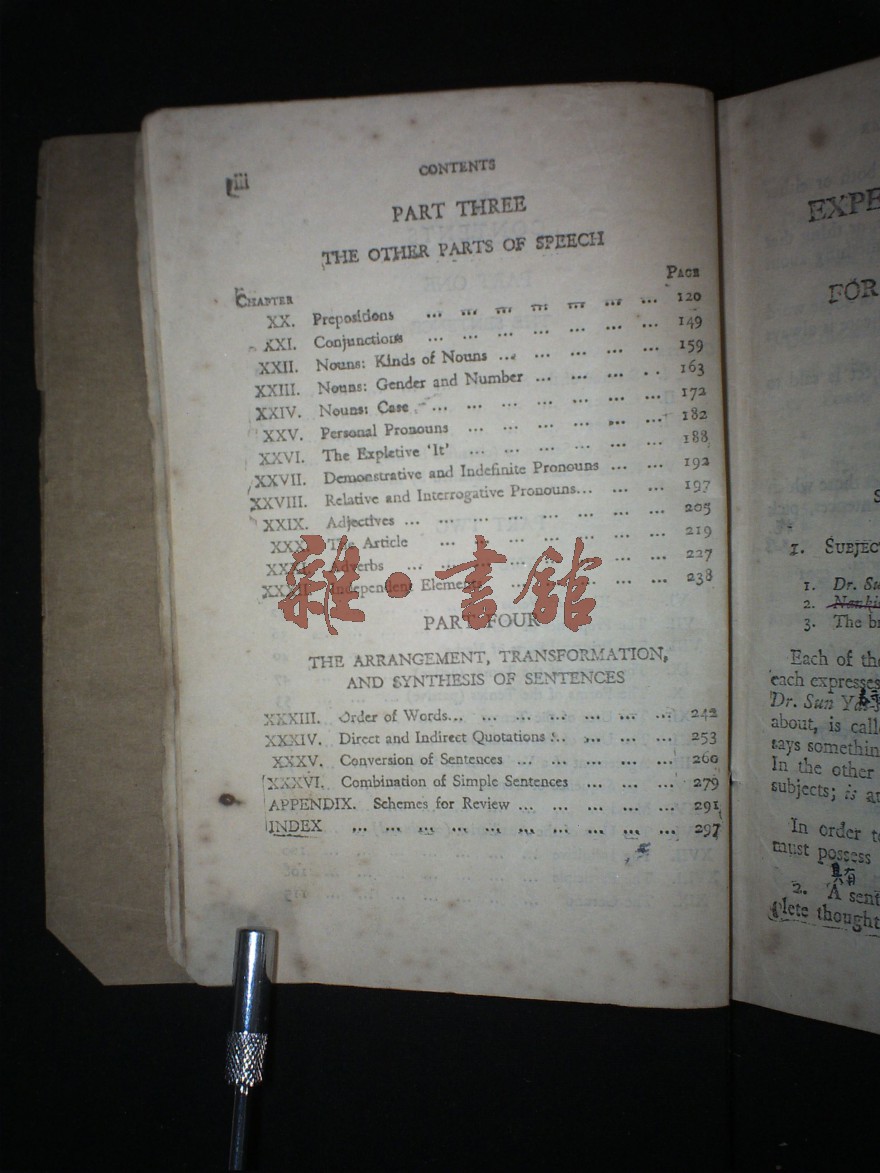 iii
CONTENTS
PART THREE
THE OTHER PARTS OF SPEECH
CHAPTER PAGE
XX. Prepositions ... ... ... ... ... ... ... 120
XXI. Conjunctions ... ... ... ... ... ... 149
XXII. Nouns: Kinds of Nouns ... ... ... ... ... 159
XXIII. Nouns: Gender and Number ... ... ... ... 163
XXIV. Nouns: Case ... ... ... ... ... ... ... 172
XXV. Personal Pronouns ... ... ... ... ... ... 182
XXVI. The Expletive 'It' ... ... ... ... ... ... 188
XXVII. Demonstrative and Indefinite Pronouns ... ... 192
XXVIII. Relative and Interrogative Pronouns... ... ... 197
XXIX. Adjectives ... ... ... ... ... ... ... ... 205
XXX. The Article ... ... ... ... ... ... ... 219
XXXI. Adverbs ... ... ... ... ... ... ... ... 227
XXXII. Independent Elements ... ... ... ... ... 238
雜·書館
PART FOUR
THE ARRANGEMENT, TRANSFORMATION,
AND SYNTHESIS OF SENTENCES
XXXIII. Order of Words... ... ... ... ... ... ... 242
XXXIV. Direct and Indirect Quotations ... ... ... ... 253
XXXV. Conversion of Sentences ... ... ... ... ... 260
XXXVI. Combination of Simple Sentences ... ... ... 279
APPENDIX. Schemes for Review ... ... ... ... ... 291
INDEX ... ... ... ... ... ... ... ... ... ... 297
EXPE
FOR
S
1. SUBJEC
1. Dr. Su
2. Nanki
3. The b
Each of the
each expresses
Dr. Sun Yat-s
about, is call
says somethin
In the other
subjects; is a
In order t
must possess
具有
2. A sent
plete thought